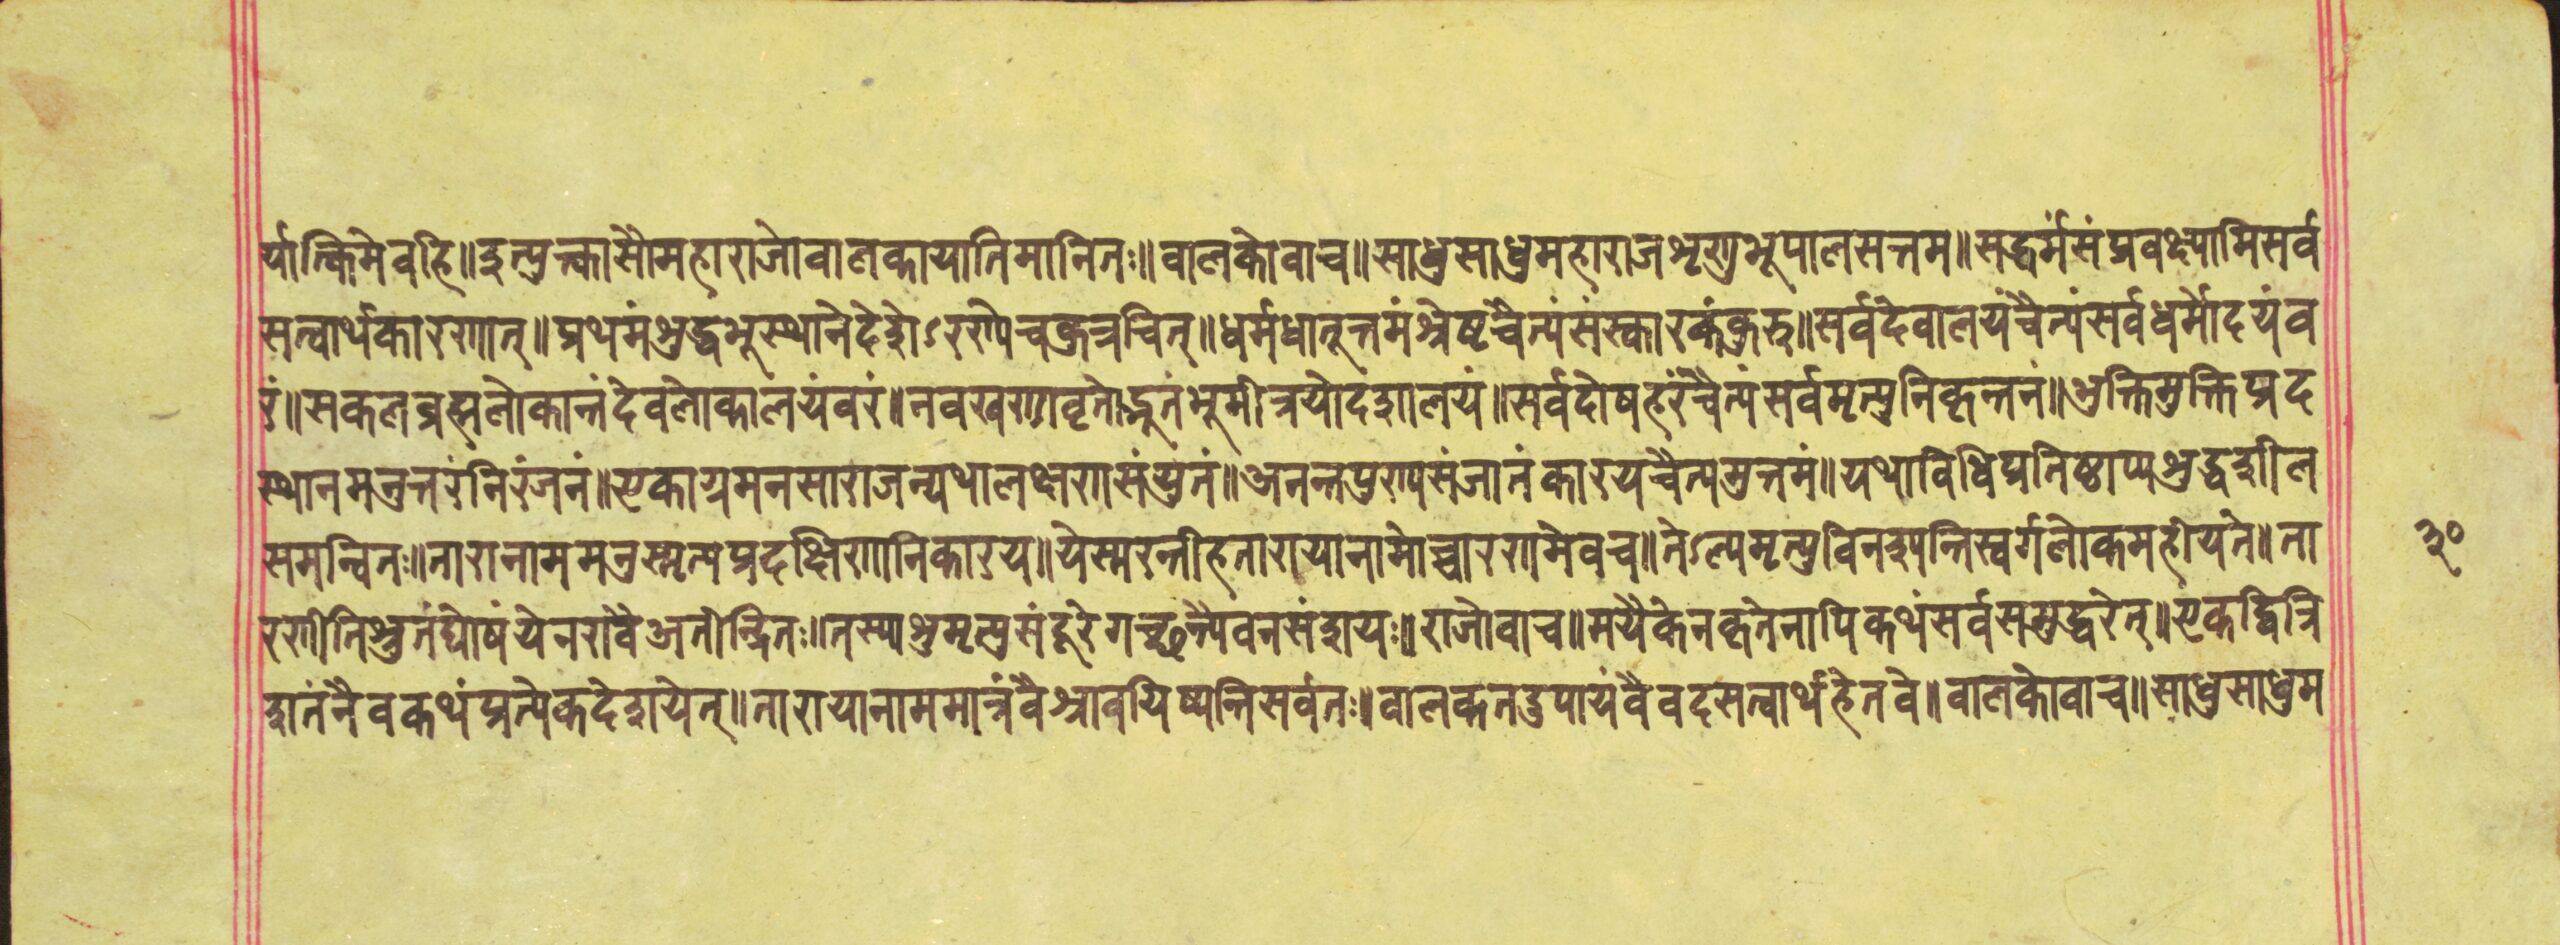 र्यात्किमेवहि॥इत्युक्त्कासौमहाराजोवालकायातिमानितः॥वालकोवाच॥साधुसाधुमहाराजशृणुभूपालसत्तम॥सद्धर्मंसंप्रवक्ष्यामिसर्व
सत्वार्थकारणात्॥प्रथमंशुद्धभूस्थानेदेशेऽरण्येचकुत्रचित्॥धर्मधातूत्तमंश्रेष्टंचैत्यंसंस्कारकंकुरु॥सर्वदेवालयंचैत्यंसर्वधर्मोदयंव
रं॥सकलब्रह्मलोकान्तंदेवलोकालयंवरं॥नवखण्डावृतोद्भुतंभूमीत्रयोदशालयं॥सर्वदोषहरंचैत्यंसर्वमृत्युनिकृन्तनं॥भुक्तिमुक्तिप्रद
स्थानमनुत्तरंनिरंजनं॥एकाग्रमनसाराजन्यथालक्षणसंयुतं॥अनन्तपुण्यसंजातंकारयच्चैत्यमुत्तमं॥यथाविधिप्रतिष्ठाप्यशुद्धशील
समन्वितः॥तारानाममनुस्मृत्यप्रदक्षिणानिकारय॥येस्मरन्तीहतारायानामोच्चारणमेवच॥तेऽल्पमृत्युविनश्यन्तिस्वर्गलोकमहीयते॥ता
रणीतिश्रुतंघोषंयेनरावैअतीन्द्रितः॥तस्याशुमृत्युसंदूरेगच्छन्त्यैवनसंशयः॥राजोवाच॥मयैकेनकृतेनापिकथंसर्वसमुद्धरेत्॥एकद्वित्रि
शतंनैवकथंप्रत्येकदेशयेत्॥तारायानाममात्रंवैश्रावयिष्यन्तिसर्वतः॥वालकतदुपायंवैवदसत्वार्थहेतवे॥वालकोवाच॥साधुसाधुम
३०